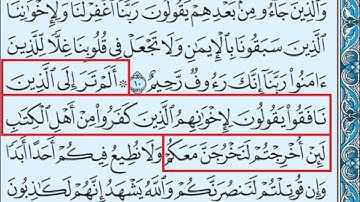 وَالَّذِينَ جَاءُو مِنۢ بَعْدِهِمْ يَقُولُونَ رَبَّنَا ٱغْفِرْ لَنَا وَلِإِخْوَٰنِنَا
ٱلَّذِينَ سَبَقُونَا بِٱلْإِيمَٰنِ وَلَا تَجْعَلْ فِى قُلُوبِنَا غِلًّا لِّلَّذِينَ
ءَامَنُوا۟ رَبَّنَآ إِنَّكَ رَءُوفٌ رَّحِيمٌ ١٠ ۞ أَلَمْ تَرَ إِلَى ٱلَّذِينَ
نَافَقُوا۟ يَقُولُونَ لِإِخْوَٰنِهِمُ ٱلَّذِينَ كَفَرُوا۟ مِنْ أَهْلِ ٱلْكِتَٰبِ
لَئِنْ أُخْرِجْتُمْ لَنَخْرُجَنَّ مَعَكُمْ وَلَا نُطِيعُ فِيكُمْ أَحَدًا أَبَدًا
وَإِن قُوتِلْتُمْ لَنَنصُرَنَّكُمْ وَٱللَّهُ يَشْهَدُ إِنَّهُمْ لَكَٰذِبُونَ